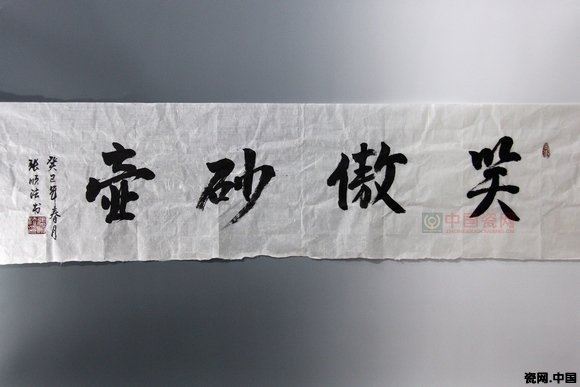 笑傲砂壺
癸巳年春月
张顺法书
中国瓷网
瓷网.中国